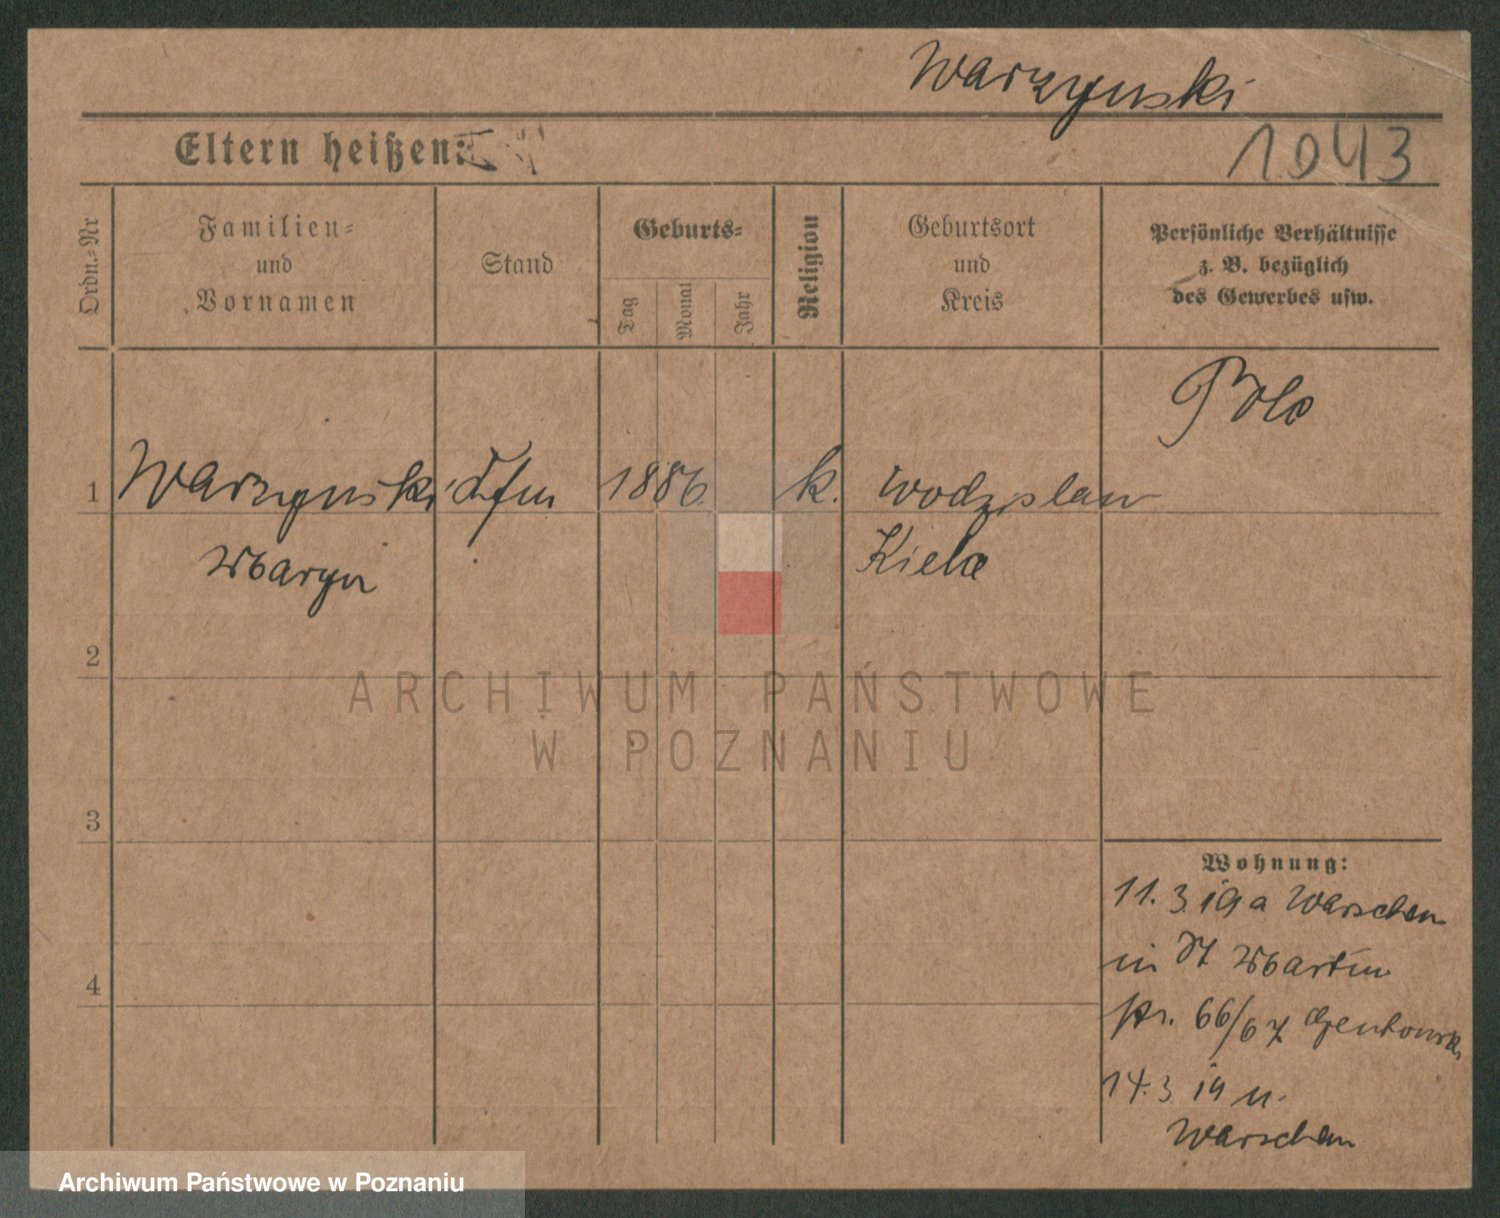 Warzynski
Eltern heißen:
1043
Ordn.-Nr
Familien-
und
Vornamen
Stand
Geburts-
Tag
Monat
Jahr
Religion
Geburtsort
und
Kreis
Persönliche Verhältnisse
z. B. bezüglich
des Gewerbes usw.
Pole
1 Warzynski 1886 k. Wodzislaw
Maryn Kielce
2
3
4
Wohnung:
11. 3. 19 a Warschau
in St Martin
str. 66/67
14. 3. 19 n.
Warschau
ARCHIWUM PAŃSTWOWE
W POZNANIU
Archiwum Państwowe w Poznaniu